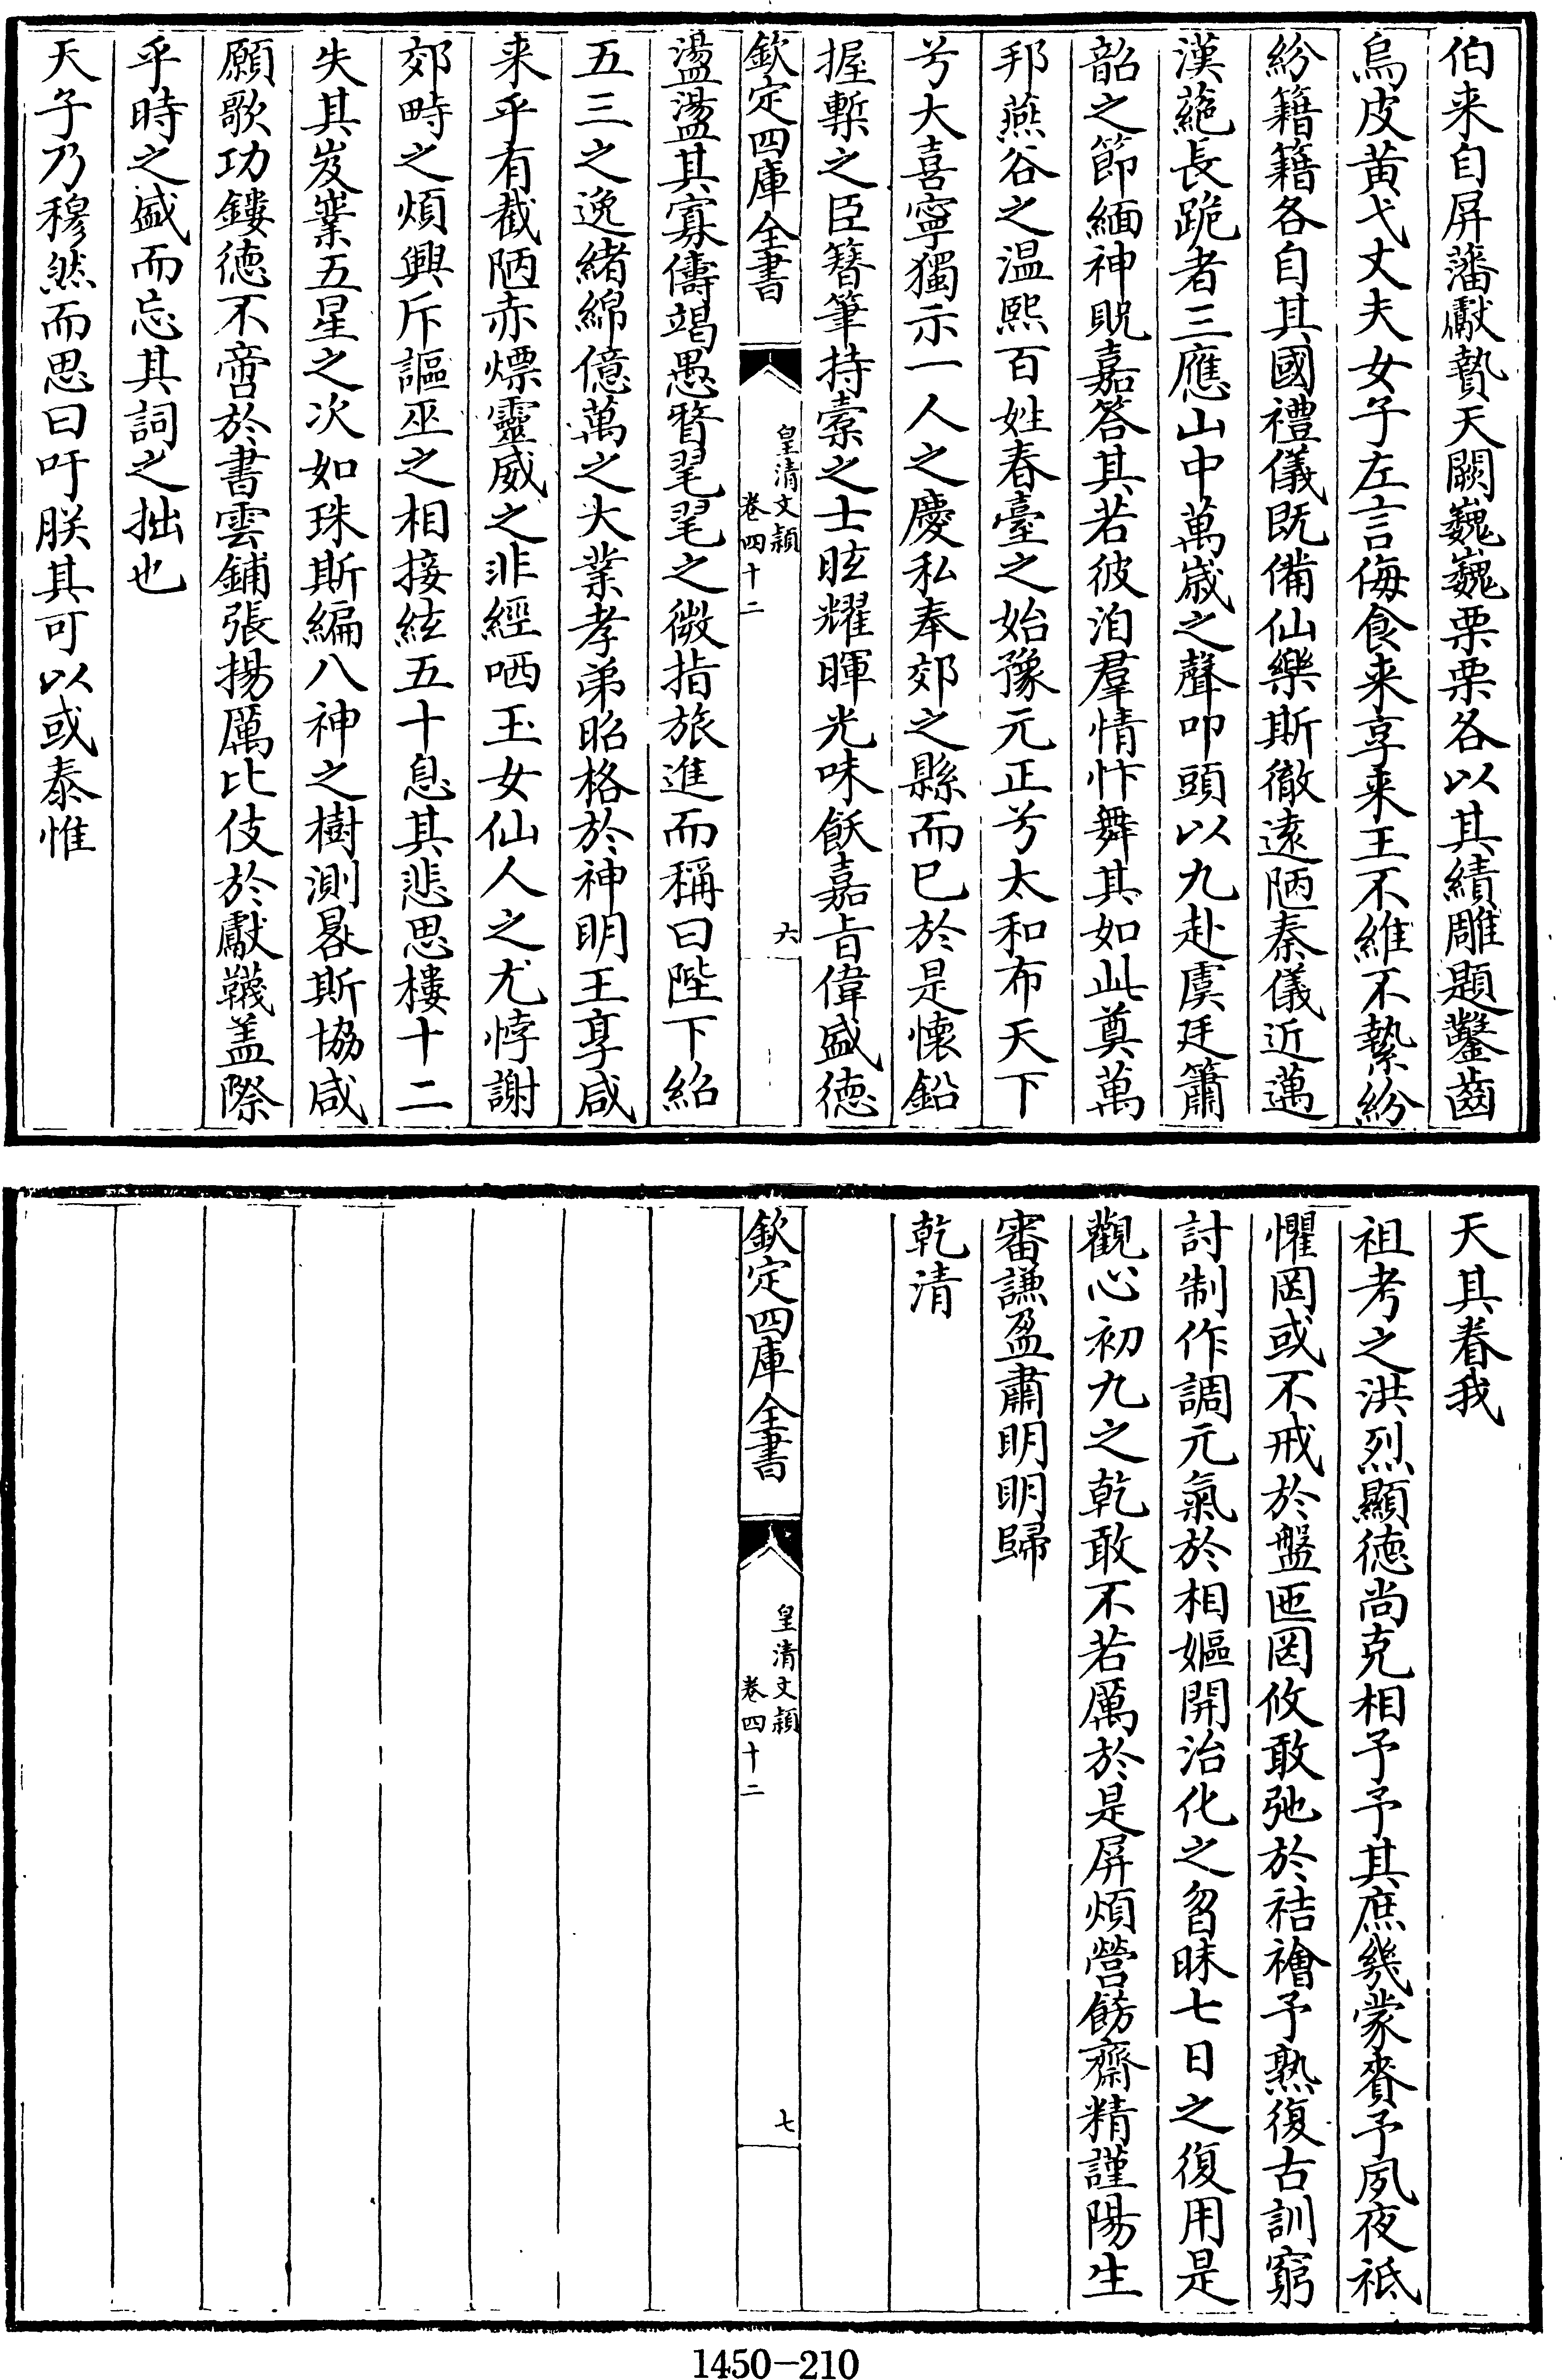 伯来自屏藩獻贄天闕巍巍栗栗各以其績雕題鑿齒
烏皮黄弋丈夫女子左言侮食来享来王不維不縶紛
紛籍籍各自其國禮儀既備仙樂斯徹逺陋秦儀近邁
漢蕝長跪者三應山中萬嵗之聲叩頭以九赴虞廷簫
韶之節緬神貺嘉答其若彼洎羣情忭舞其如此奠萬
邦燕谷之温熙百姓春臺之始豫元正兮太和布天下
兮大喜寧獨示一人之慶私奉郊之縣而已於是懐鉛
握槧之臣簪筆持橐之士昡耀暉光味飫嘉旨偉盛徳
欽定四庫全書
皇清文穎
卷四十二
六
盪盪其寡儔竭愚瞀毣毣之微指旅進而稱曰陛下紹
五三之逸緒綿億萬之大業孝弟昭格於神明王享咸
来乎有截陋赤熛靈威之非經哂玉女仙人之尤悖謝
郊畤之煩興斥謳巫之相接絃五十息其悲思樓十二
失其岌嶪五星之次如珠斯編八神之樹測晷斯協咸
願歌功鏤徳不啻於書雲鋪張揚厲比伎於獻韈盖際
乎時之盛而忘其詞之拙也
天子乃穆然而思曰吁朕其可以或泰惟
天其眷我
祖考之洪烈顯徳尚克相予予其庶幾蒙賚予夙夜祗
懼罔或不戒於盤匜罔攸敢弛於袺襘予熟復古訓窮
討制作調元氣於相嫗開治化之曶昧七日之復用是
觀心初九之乾敢不若厲於是屏煩營飭齋精謹陽生
審謙盈肅明明歸
乾清
欽定四庫全書
皇清文穎
卷四十二
七
1450-210